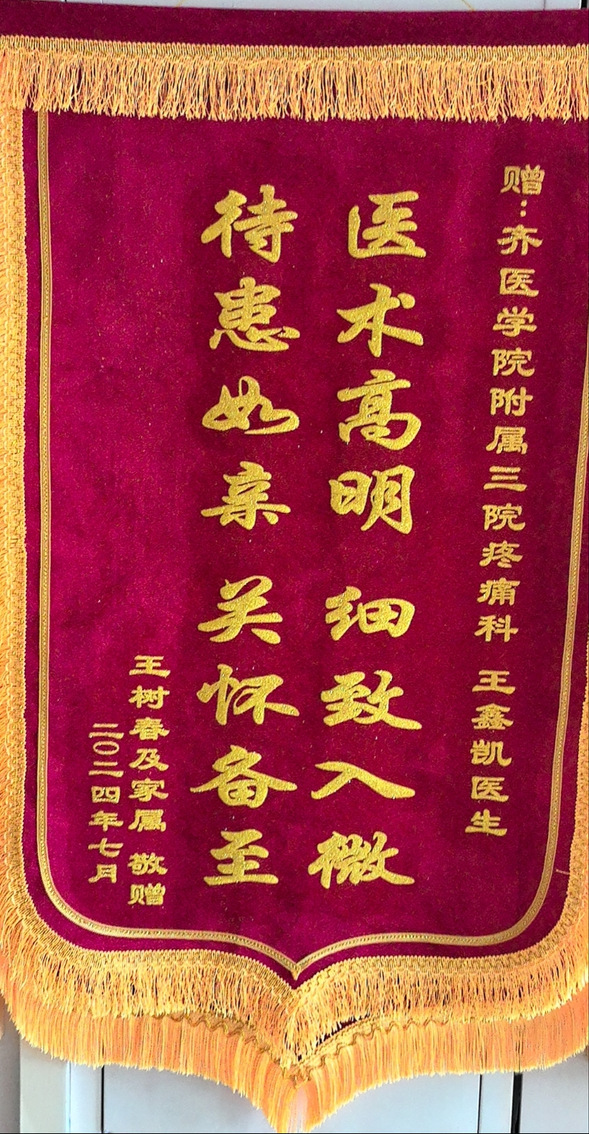 赠：齐医学院附属三院疼痛科 王鑫凯医生
医术高明 细致入微
待患如亲 关怀备至
王树春及家属 敬赠
二〇二四年七月